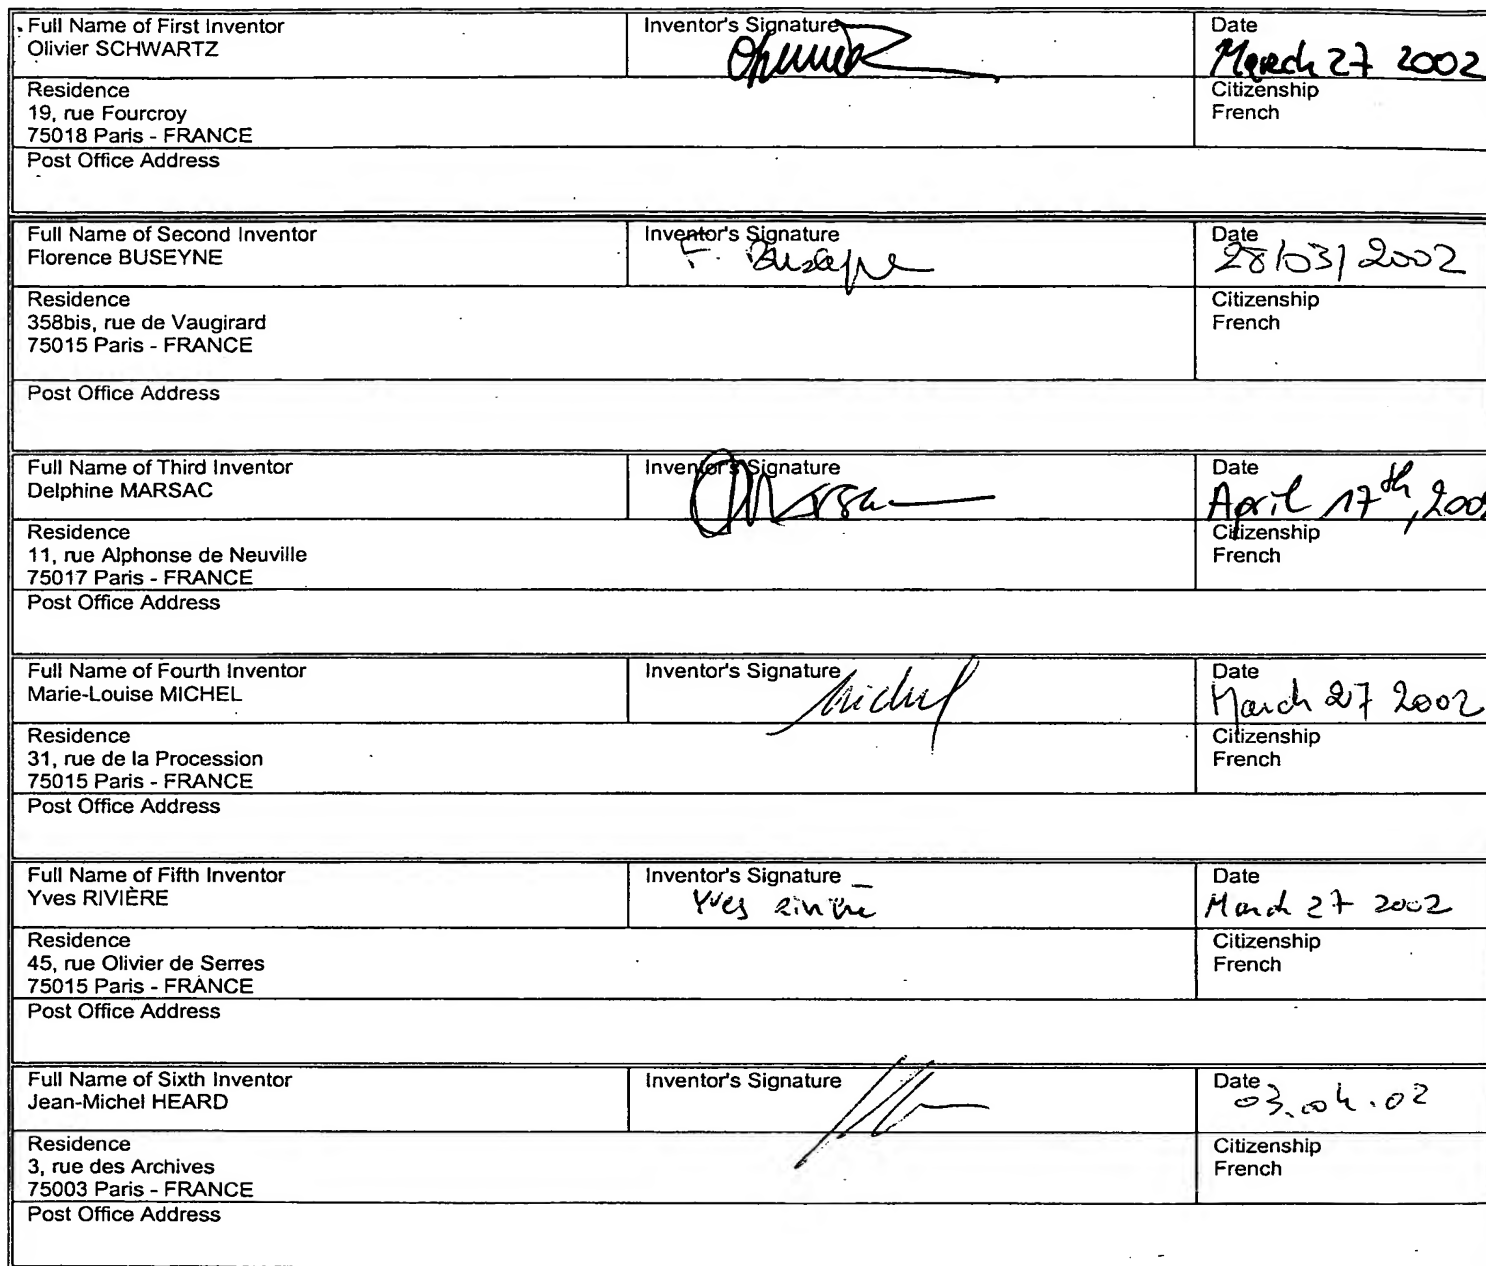 Full Name of First Inventor
Olivier SCHWARTZ
Inventor's Signature
Date
March 27 2002
Residence
19, rue Fourcroy
75018 Paris - FRANCE
Citizenship
French
Post Office Address
Full Name of Second Inventor
Florence BUSEYNE
Inventor's Signature
F. Buseyne
Date
28/03/2002
Residence
358bis, rue de Vaugirard
75015 Paris - FRANCE
Citizenship
French
Post Office Address
Full Name of Third Inventor
Delphine MARSAC
Inventor's Signature
Date
April 17th, 200
Residence
11, rue Alphonse de Neuville
75017 Paris - FRANCE
Citizenship
French
Post Office Address
Full Name of Fourth Inventor
Marie-Louise MICHEL
Inventor's Signature
Michel
Date
March 27 2002
Residence
31, rue de la Procession
75015 Paris - FRANCE
Citizenship
French
Post Office Address
Full Name of Fifth Inventor
Yves RIVIÈRE
Inventor's Signature
Yves Rivière
Date
March 27 2002
Residence
45, rue Olivier de Serres
75015 Paris - FRANCE
Citizenship
French
Post Office Address
Full Name of Sixth Inventor
Jean-Michel HEARD
Inventor's Signature
Date
03.04.02
Residence
3, rue des Archives
75003 Paris - FRANCE
Citizenship
French
Post Office Address